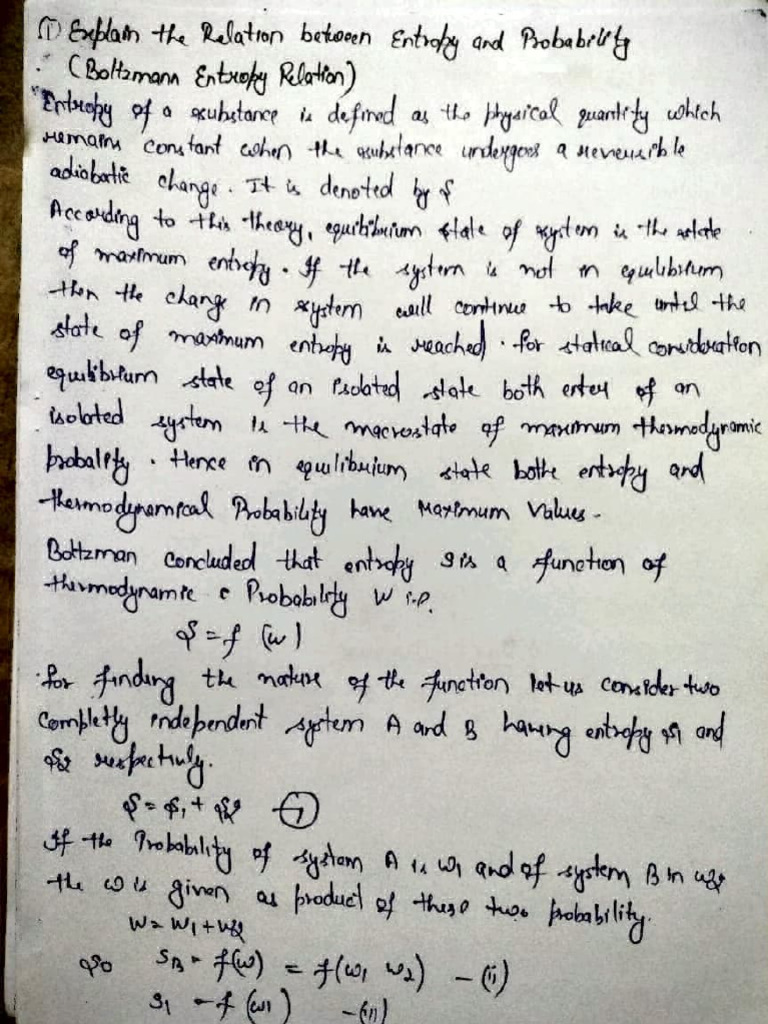 ① Explain the Relation between Entropy and Probability
(Boltzmann Entropy Relation)
"Entropy of a substance is defined as the physical quantity which
remains constant when the substance undergoes a reversible
adiabatic change. It is denoted by S
According to this theory, equilibrium state of system is the state
of maximum entropy. If the system is not in equilibrium
then the change in system will continue to take until the
state of maximum entropy is reached. for statical consideration
equilibrium state of an isolated state both of an
isolated system is the macrostate of maximum thermodynamic
probality. Hence in equilibrium state bothe entropy and
thermodynamical Probability have Maximum Values.
Boltzman concluded that entropy S is a function of
thermodynamic Probability W i.e.
S = f (w)
for finding the nature of the function let us consider two
completly independent system A and B having entropy S1 and
S2 respectively.
S = S1 + S2 - ①
If the Probability of system A is w1 and of system B in w2
the w is given as product of these two probability.
W = W1 + W2
So SB = f(w) = f(w1 w2) - (ii)
S1 = f (w1) - (iii)